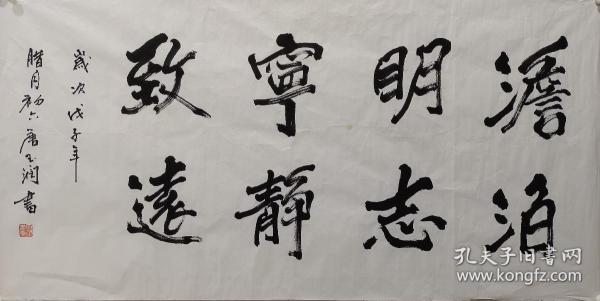 澹泊
明志
寧靜
致遠
歲次戊子年
腊月初六唐玉润書
孔夫子旧書网
www.kongfz.com